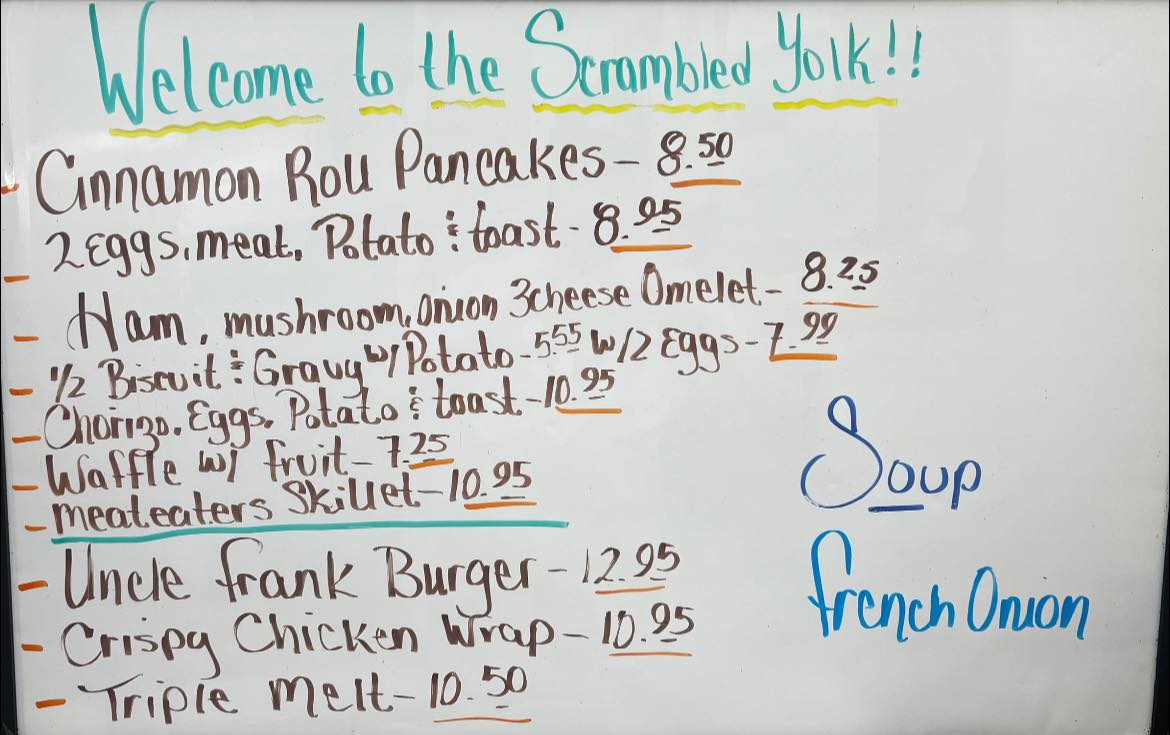 Welcome to the Scrambled Yolk!!
- Cinnamon Roll Pancakes - 8.50
- 2 Eggs, meat, Potato & toast - 8.95
- Ham, mushroom, onion 3cheese Omelet - 8.25
- 1/2 Biscuit & Gravy w/ Potato - 5.55 w/2 Eggs - 7.99
- Chorizo, Eggs, Potato & toast - 10.95
- Waffle w/ fruit - 7.25
- meateaters Skillet - 10.95
- Uncle Frank Burger - 12.95
- Crispy Chicken Wrap - 10.95
- Triple Melt - 10.50
Soup
French Onion